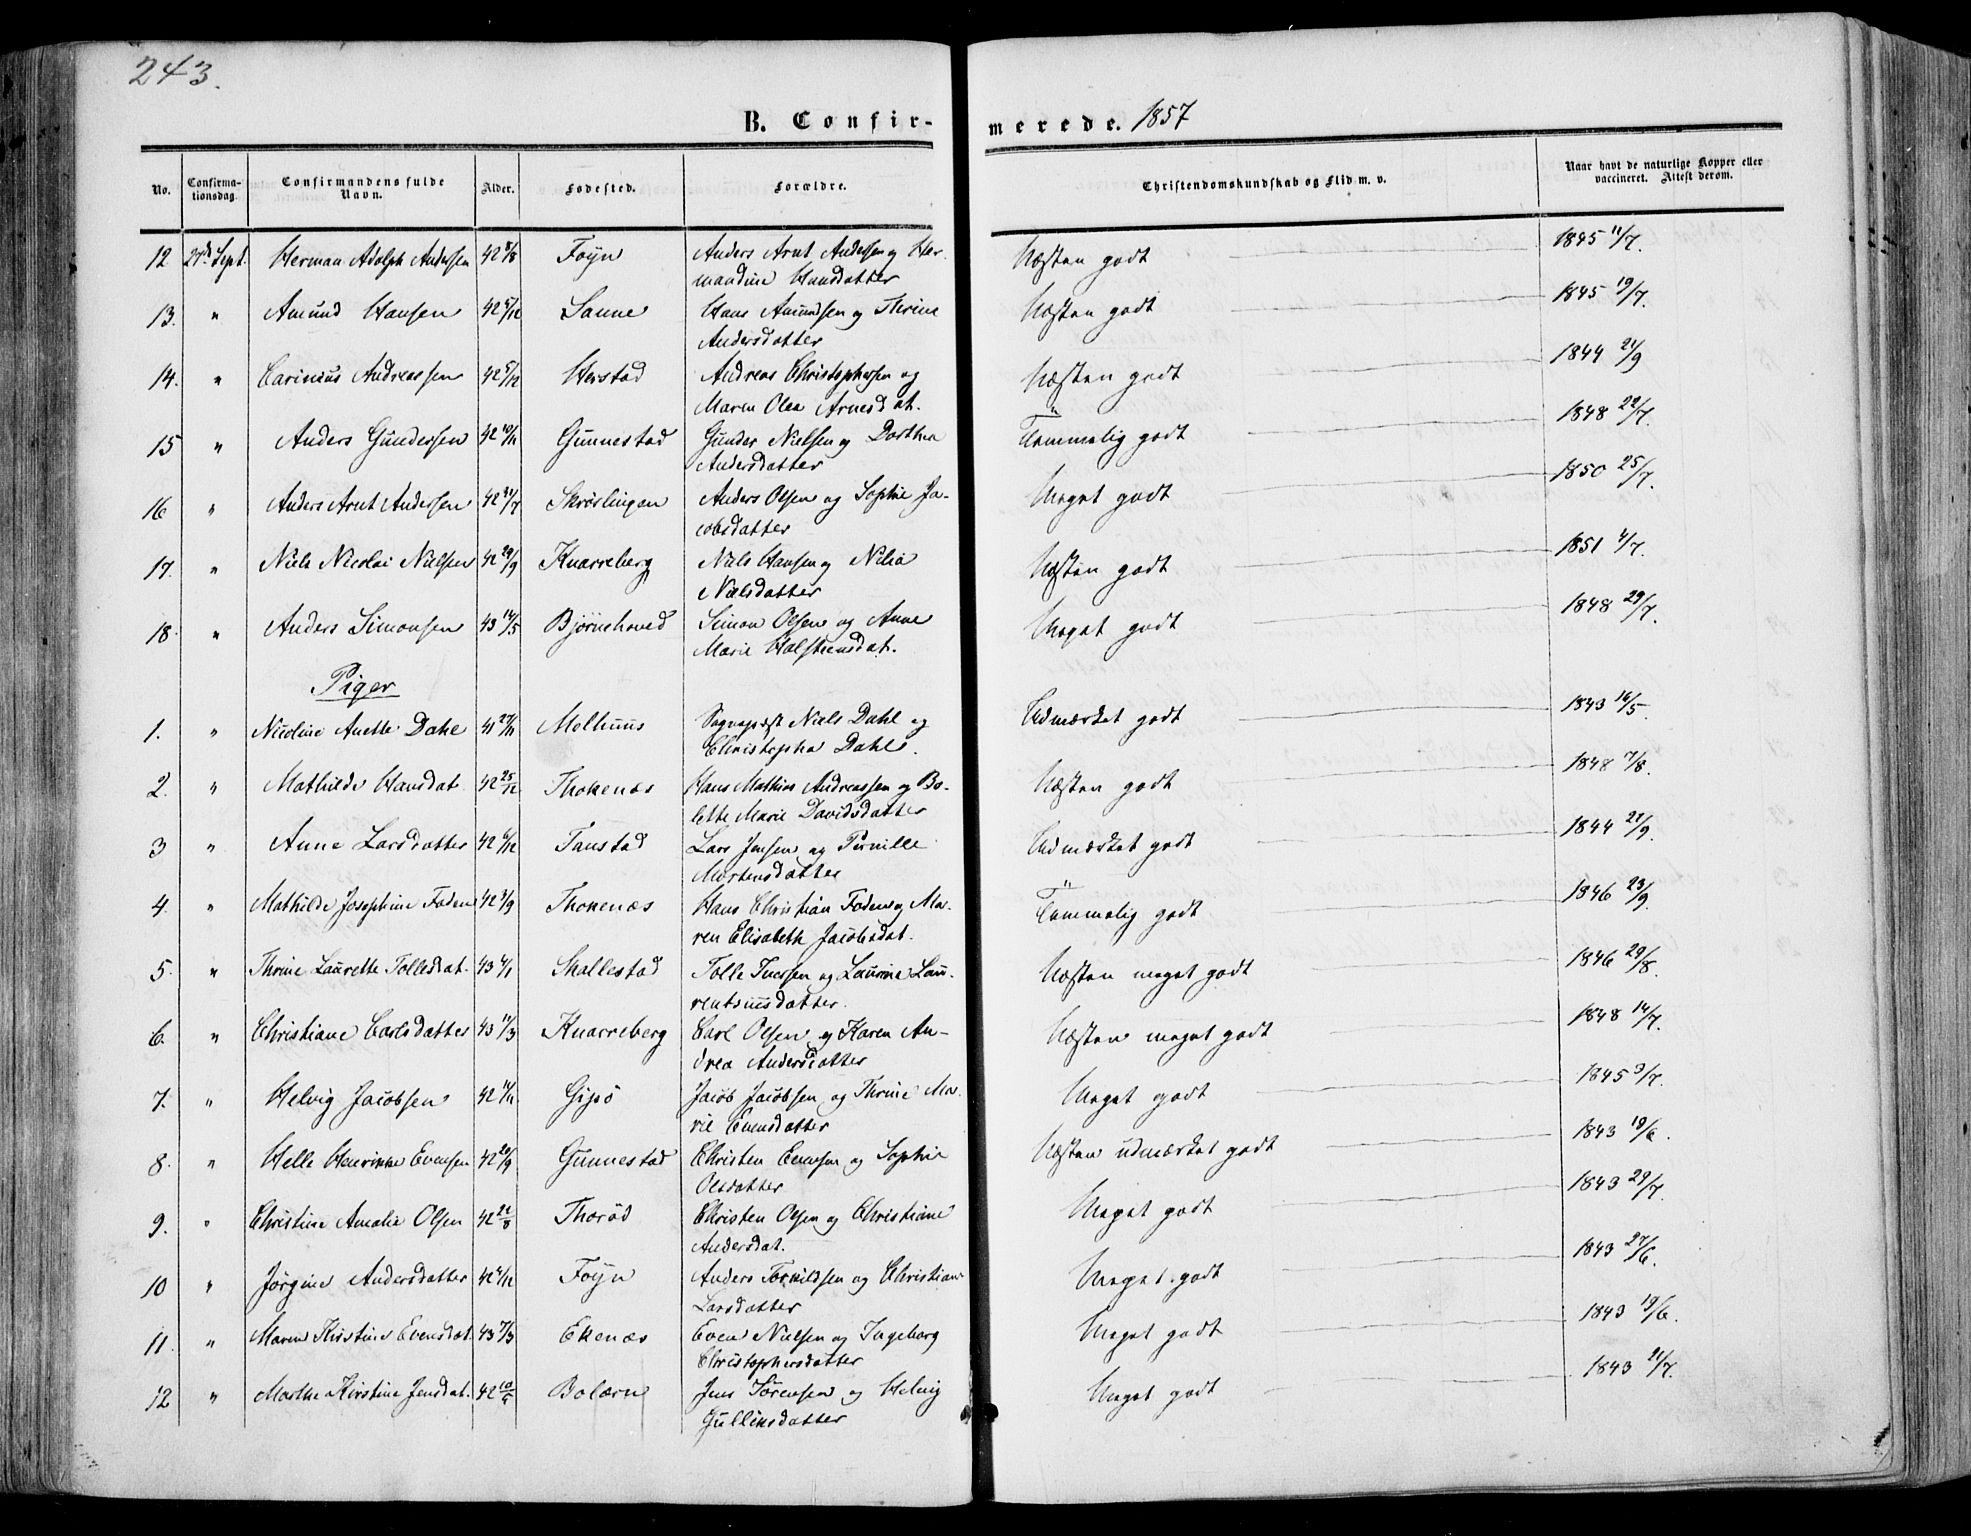 243.
B. Confir- merede. 1857
No. Confirma- Confirmandens fulde Alder. Fødested. Forældre. Christendomskundskab og Flid m. v. Naar havt de naturlige Kopper eller
tionsdag. Navn. vaccineret. Attest derom.
12 27de Sept. Herman Adolph Andersen 42 Føÿn Anders Arnt Andersen og Her- Næsten godt 1845 11/7.
mandine Hansdatter
13. " Amund Hansen 42 Sanne Hans Amundsen og Thrine Næsten godt 1845 19/7.
Andersdatter
14. " Carinius Andreassen 42 5/12 Herstad Andreas Christophersen og Næsten godt 1844 21/9
Maren Olea Arnesdat.
15 " Anders Gundersen 42 10/11 Gunnestad Gunder Nielsen og Dorthea Temmelig godt 1848 22/7.
Andersdatter
16 " Anders Arnt Andersen 42 Skrøslingen Anders Olsen og Sophie Ja- Meget godt 1850 25/7.
cobsdatter
17. " Niels Nicolai Nielsen 42 29/9 Knarreberg Niels Hansen og Nilia Næsten godt 1851
Nielsdatter
18. " Anders Simonsen 43 14/5 Bjørnehoved Simon Olsen og Anne Meget godt 1848 29/7.
Marie Halsteensdat.
Piger
1. " Nicoline Anette Dahl 41 27/11 Melhuus Sognepræst Niels Dahl og Udmærket godt 1843 16/5.
Christopha Dahl.
2. " Mathilde Hansdat 42 25/12 Thokenæs Hans Mathias Andreassen og Bo- Næsten godt 1848 7/8.
lette Marie Davidsdatter
3 " Anne Larsdatter 42 6/12 Fanstad Lars Jensen og Pernille Udmærket godt 1844 21/9.
Mortensdatter
4. " Mathilde Josephine Foden 42 3/9 Thokenæs Hans Christian Foden og Ma- Temmelig godt 1846 23/9.
ren Elisabeth Jacobsdat.
5. " Thrine Laurette Tollesdat. 43 Skallestad Tolle Iversen og Laurine Lau- Næsten meget godt 1846 29/8.
rentsiusdatter.
6. " Christiane Carlsdatter 43 11/3 Knarreberg Carl Olsen og Karen An- Næsten meget godt 1848 14/7.
drea Andersdatter
7. " Helvig Jacobsen 42 11/11 Gipø Jacob Jacobsen og Thrine Ma- Meget godt 1845 3/7.
rie Evensdatter
8. " Helle Henrikke Evensen 42 20/9 Gunnestad Christen Evensen og Sophie Næsten udmærket godt 1843 19/6.
Olsdatter
9. " Christine Amalie Olsen 42 Thorød Christen Olsen og Christiane Meget godt 1843 29/7.
Andersdat.
10 " Jørgine Andersdatter 42 Føÿn Anders Tornildsen og Christiane Meget godt 1843 27/6.
Larsdatter
11. " Maren Kirstine Evensdat. 43 7/3 Ekenæs Even Nielsen og Ingeborg Meget godt 1843 19/6.
Christophersdatter
12 " Marthe Kirstine Jensdat. 42 Bolærn Jens Sørensen og Helvig Meget godt 1843 21/7.
Gulliksdatter